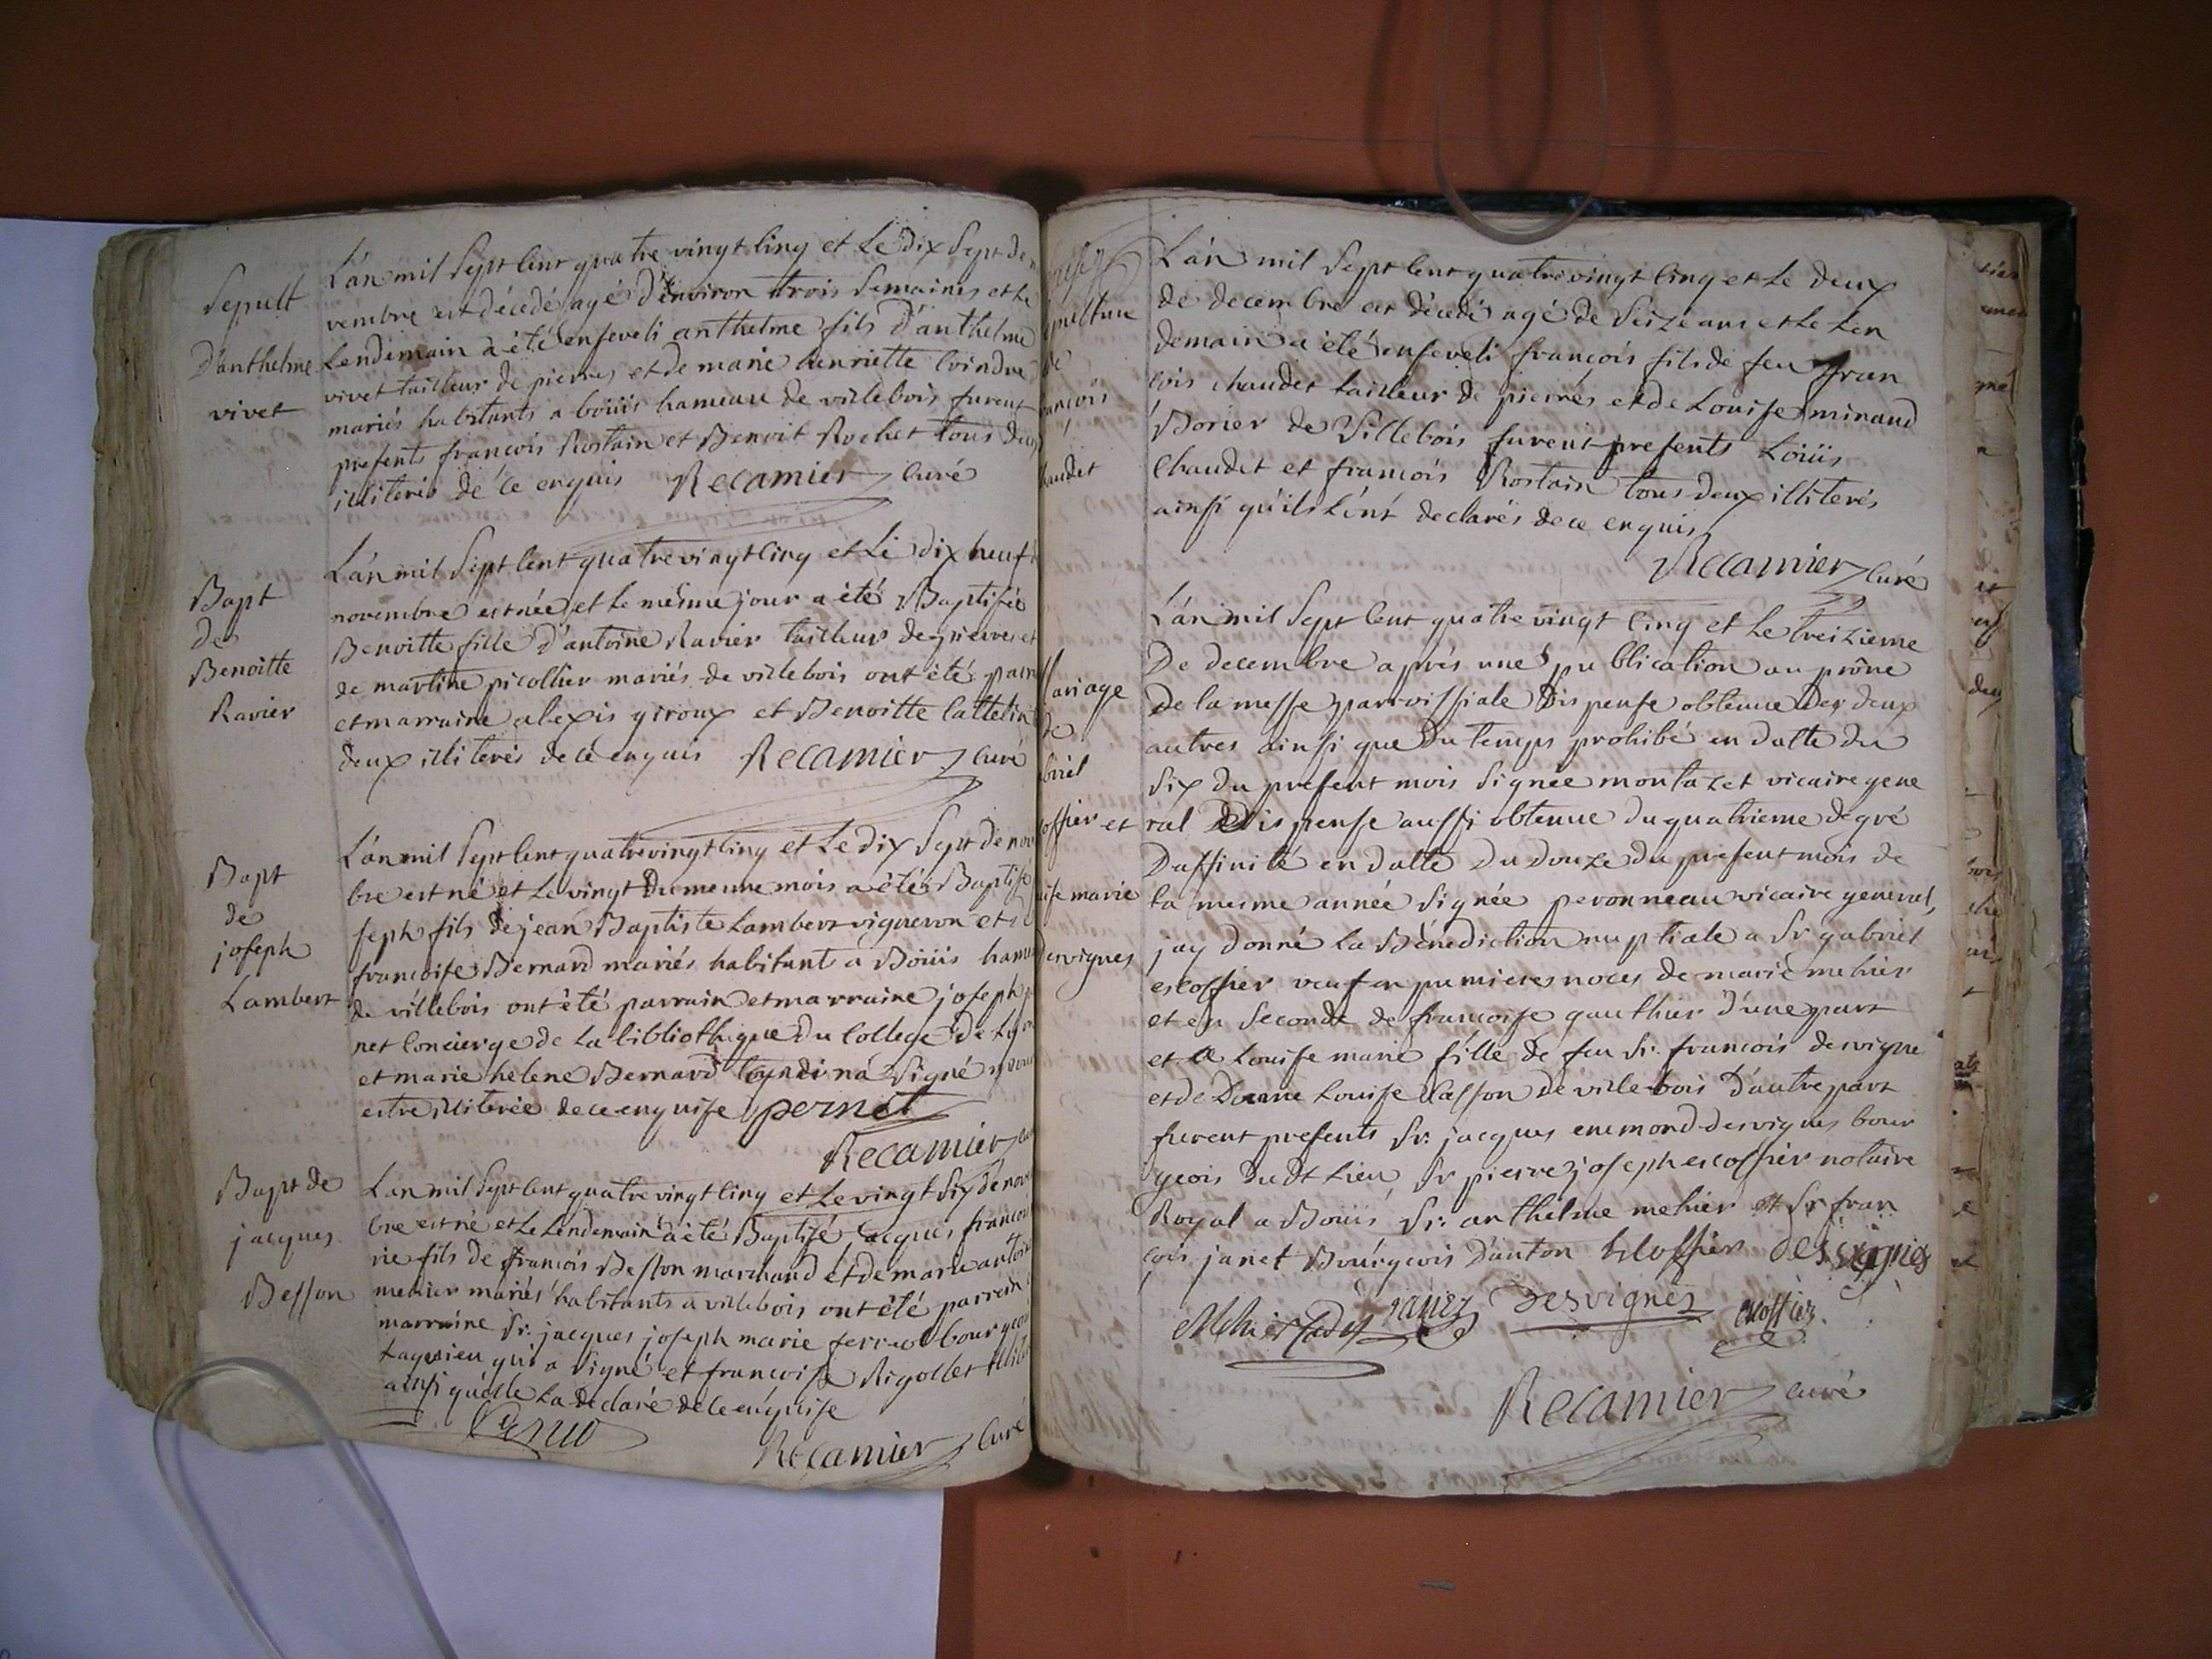 Sepult
D'anthelme
vivet
L'an mil sept cent quatre vingt cinq et le dix sept de n
vembre est décédé agé d'environ trois semaines et le
lendemain a été enseveli anthelme fils d'anthelme
vivet tailleur de pierres et de marie henriette Coindre
mariés habitants a boüis hameau de villebois furent
presents françois Rostain et Benoit Rochet tous deux
illiterés de ce enquis Recamier curé
Bapt
de
Benoitte
Ravier
L'an mil sept cent quatre vingt cinq et le dix neuf
novembre est née et le mesme jour a été Baptisée
Benoitte fille d'antoine Ravier tailleur de pierres et
de martine picollier mariés de villebois ont été parr
et marraine alexis giroux et Benoitte Cattelin
deux illiterés de ce enquis Recamier curé
Bapt
de
joseph
Lambert
L'an mil sept cent quatre vingt cinq et le dix sept de nov
bre est né et le vingt du mesme mois a été Baptisé
seph fils de jean Baptiste Lambert vigneron et
françoise Bernard mariés habitants a Boüis ham
de villebois ont été parrain et marraine joseph p
net concierge de la bibliotheque du College de Lyon
et marie helene Bernard laquelle n'a signé
estre illiterée de ce enquise pernet
Recamier
Bapt de
jacques
Besson
L'an mil sept cent quatre vingt cinq et le vingt six de nov
bre est né et le lendemain a été Baptisé jacques françois
rie fils de françois Besson marchand et de marie antoi
mehier mariés habitants a villebois ont été parrein
marraine Sr. jacques joseph marie ferrus bourgeois
Lagnieu qui a signé et françoise Rigollet illit
ainsi qu'elle la declaré de ce enquise
Recamier curé
pulture
de
ançois
haudet
L'an mil sept cent quatre vingt cinq et le deux
de decembre est décédé agé de seize ans et le len
demain a été enseveli françois fils de feu fran
çois chaudet tailleur de pierres et de Louise minaud
Borier de Villebois furent presents Loüis
Chaudet et françois Rostain tous deux illiterés
ainsi qu'ils l'ont declarés de ce enquis
Recamier curé
ariage
de
briel
offier et
ise marie
esvignes
L'an mil sept cent quatre vingt cinq et le treizieme
De decembre aprés une publication au prône
De la messe parroissiale Dispense obtenue des deux
autres ainsi que du temps prohibé en datte du
six du present mois signée montazet vicaire gene
ral Dispense aussi obtenue du quatrieme degré
Daffinité en datte du douze du present mois de
la mesme année signée peronneau vicaire general,
jay donné la Bénediction nuptiale a Sr gabriel
escoffier veuf en premieres noces de marie mehier
et en seconde de françoise gauthier d'une part
et a Louise marie fille de feu Sr. françois desvigne
et de Dame Louise Casson de villebois D'autre part
furent presents Sr. jacques enemond desvignes bour
geois dudt lieu, Sr pierre joseph escoffier notaire
Royal a Bouis, Sr. anthelme mehier et Sr fran
çois janet Bourgeois d'anton Escoffier desvignes
Mehier Cadet Janez Desvignes escoffier
Recamier curé